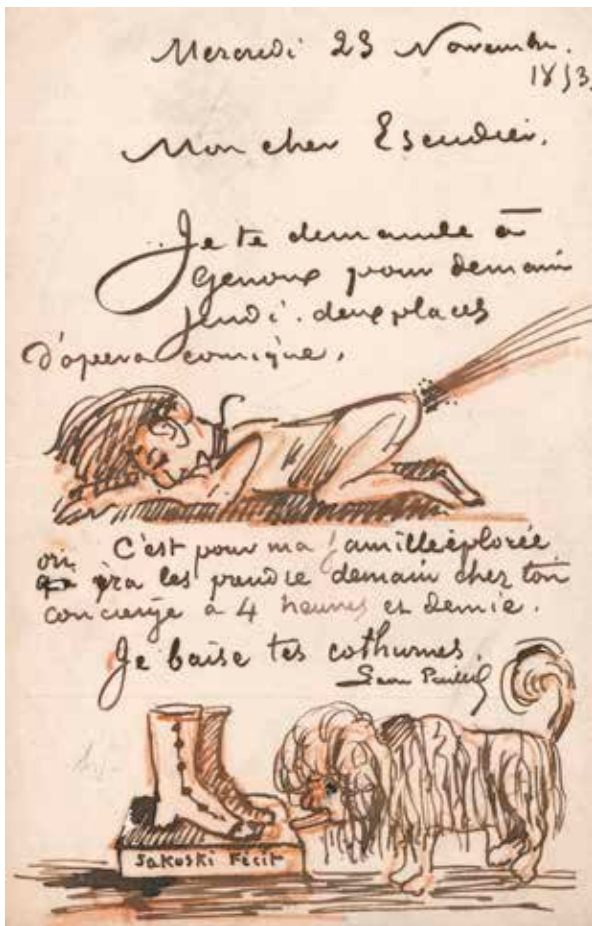 Mercredi 23 Novembre.
1853.
Mon cher Escudier.
Je te demande à
genoux pour demain
jeudi. deux places
d'opera comique.
C'est pour ma famille éplorée
on ira les prendre demain chez ton
concierge à 4 heures et demie.
Je baise tes cothurnes.
Sakoski Fécit